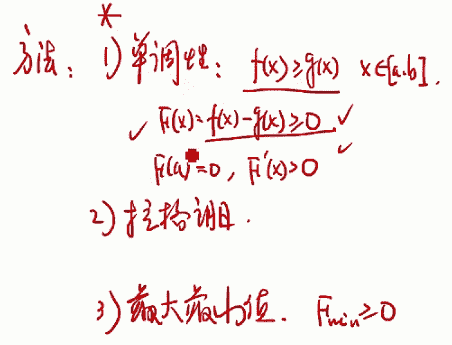 *
方法: 1) 单调性: f(x)≥g(x) x∈[a.b].
✓ F(x)=f(x)-g(x)≥0 ✓
F(a)=0, F'(x)>0 ✓
2) 拉格朗日.
3) 最大最小值. Fmin≥0